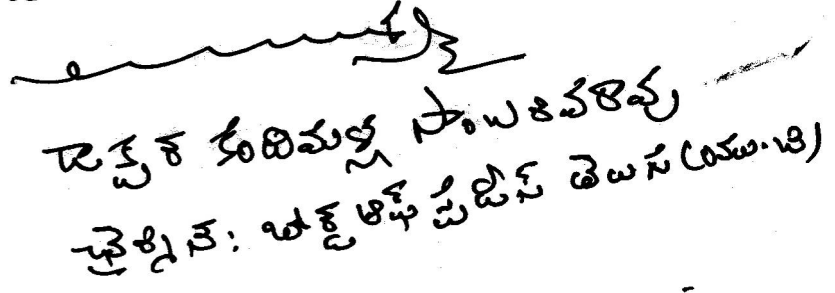 డాక్టర్ కందిమళ్ల సాంబశివరావు
ఛైర్మన్: బోర్డ్ ఆఫ్ స్టడీస్ తెలుగు (యు.జి)